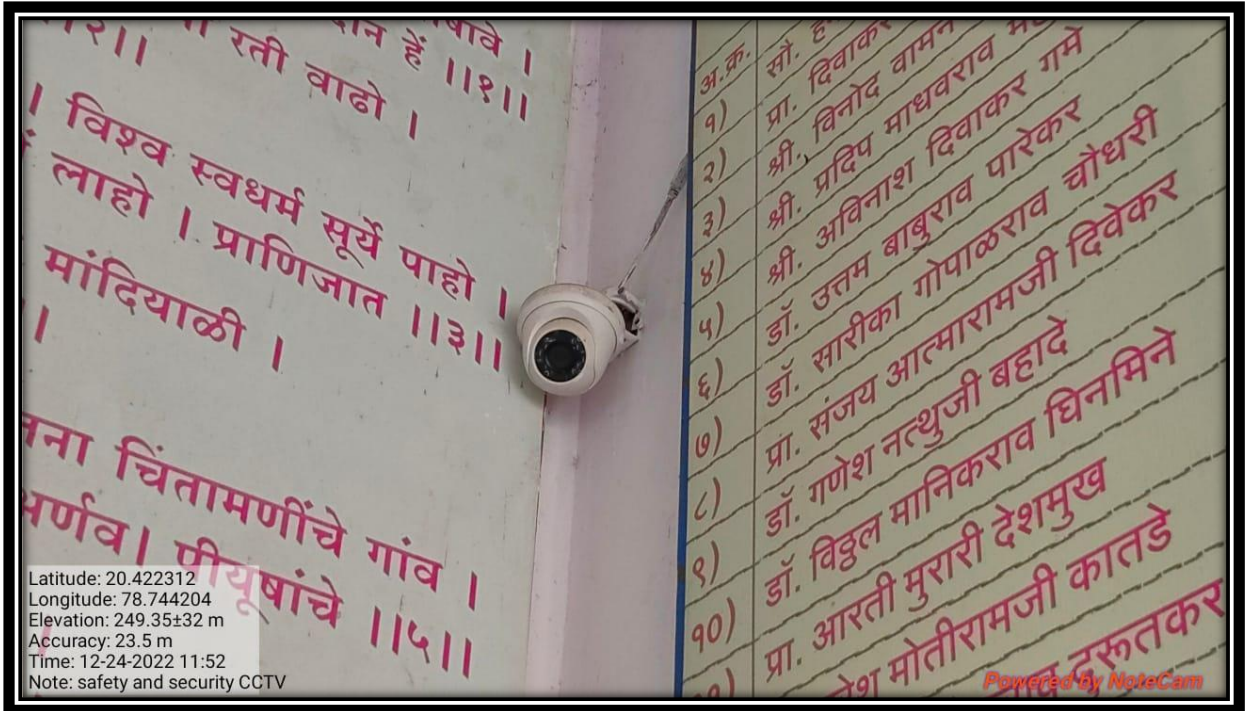 रती वाढो ।
हें ।।१।।
। विश्व स्वधर्म सूर्ये पाहो ।
लाहो । प्राणिजात ।।३।।
मांदियाळी ।
चिंतामणींचे गांव ।
पीयूषांचे ।।५।।
अ.क्र.
१) प्रा. दिवाकर
२) श्री. विनोद वामन
३) श्री. प्रदिप माधवराव
४) श्री. अविनाश दिवाकर गमे
५) डॉ. उत्तम बाबुराव पारेकर
६) डॉ. सारीका गोपाळराव चौधरी
७) प्रा. संजय आत्मारामजी दिवेकर
८) डॉ. गणेश नत्थुजी बहादे
९) डॉ. विठ्ठल मानिकराव घिनमिने
१०) प्रा. आरती मुरारी देशमुख
मोतीरामजी कातडे
Latitude: 20.422312
Longitude: 78.744204
Elevation: 249.35±32 m
Accuracy: 23.5 m
Time: 12-24-2022 11:52
Note: safety and security CCTV
Powered by NoteCam